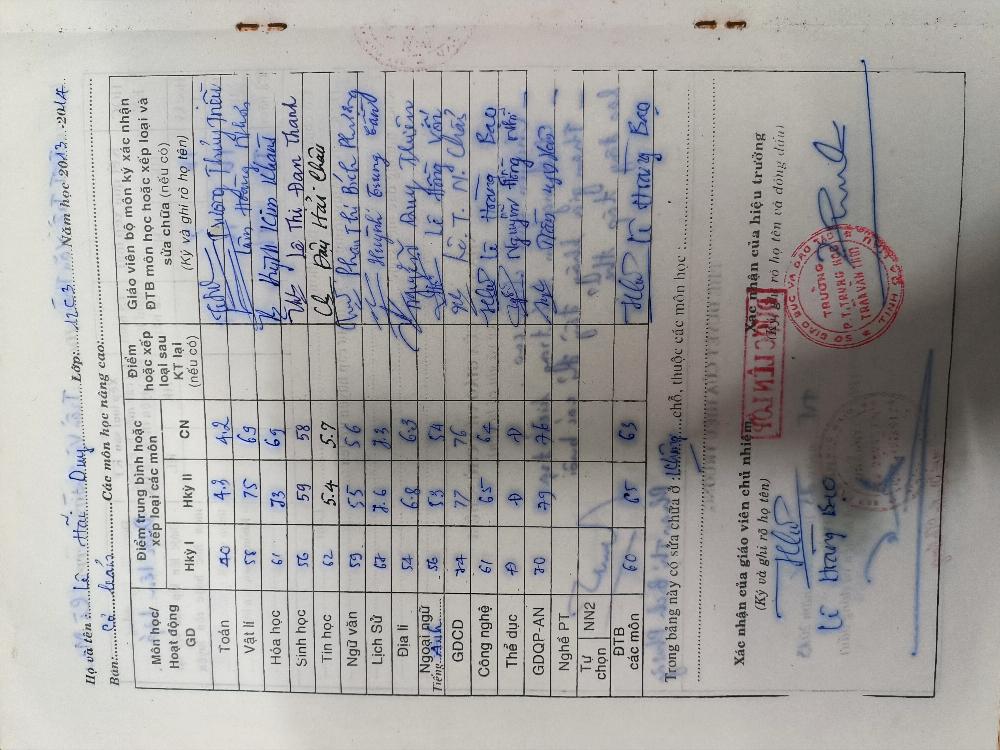 Họ và tên: Lê Hải Duy Lớp: 12C3 Năm học 2013-2014
Ban: Cơ bản Các môn học nâng cao:
Môn học/ Hoạt động GD
Điểm trung bình hoặc xếp loại các môn
Hky I Hky II CN
Điểm hoặc xếp loại sau KT lại (nếu có)
Giáo viên bộ môn ký xác nhận ĐTB môn học hoặc xếp loại và sửa chữa (nếu có)
(Ký và ghi rõ họ tên)
Toán 40 4.3 4.2 Trương Thúy
Vật lí 58 75 69 Hoàng
Hóa học 61 73 69 Kim Khánh
Sinh học 56 59 58 Lê Thị Đan Thanh
Tin học 62 5.4 5.7 Đậu Hải Châu
Ngữ văn 59 55 56 Phan Thị Bích Phượng
Lịch Sử 67 7.6 7.3 Huỳnh Trung
Địa lí 54 6.8 6.3 Nguyễn Duy Thiên
Ngoại ngữ Tiếng: Anh 56 53 54 Lê Hồng Vấn
GDCD 74 77 76 Lê. T. N.
Công nghệ 61 65 64 Lê Hoàng Bảo
Thể dục Đ Đ Đ Nguyễn Hồng
GDQP-AN 70 79 76
Nghề PT
Tự chọn
NN2
ĐTB các môn 60 65 63 Lê Hoàng Bảo
Trong bảng này có sửa chữa ở : không chỗ, thuộc các môn học
Xác nhận của giáo viên chủ nhiệm
(Ký và ghi rõ họ tên)
Lê Hoàng Bảo
Xác nhận của hiệu trưởng
(Ký, ghi rõ họ tên và đóng dấu)
SỞ GIÁO DỤC VÀ ĐÀO TẠO
TRƯỜNG
TRUNG HỌC
TRẦN VĂN THỜI
ĐƯỢC LÊN LỚP